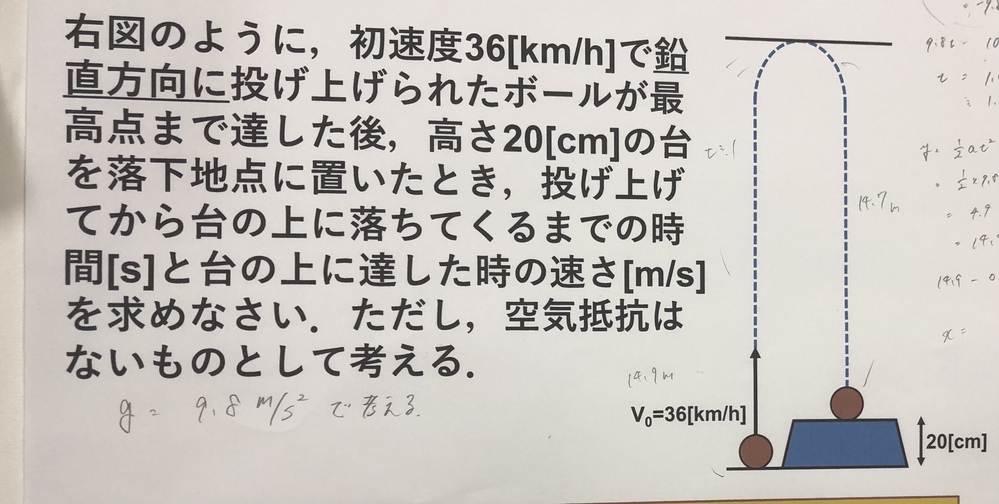 右図のように，初速度36[km/h]で鉛
直方向に投げ上げられたボールが最
高点まで達した後，高さ20[cm]の台
を落下地点に置いたとき，投げ上げ
てから台の上に落ちてくるまでの時
間[s]と台の上に達した時の速さ[m/s]
を求めなさい．ただし，空気抵抗は
ないものとして考える．
g = 9.8 m/s² で考える.
14.7m
14.9m
V₀=36[km/h]
20[cm]